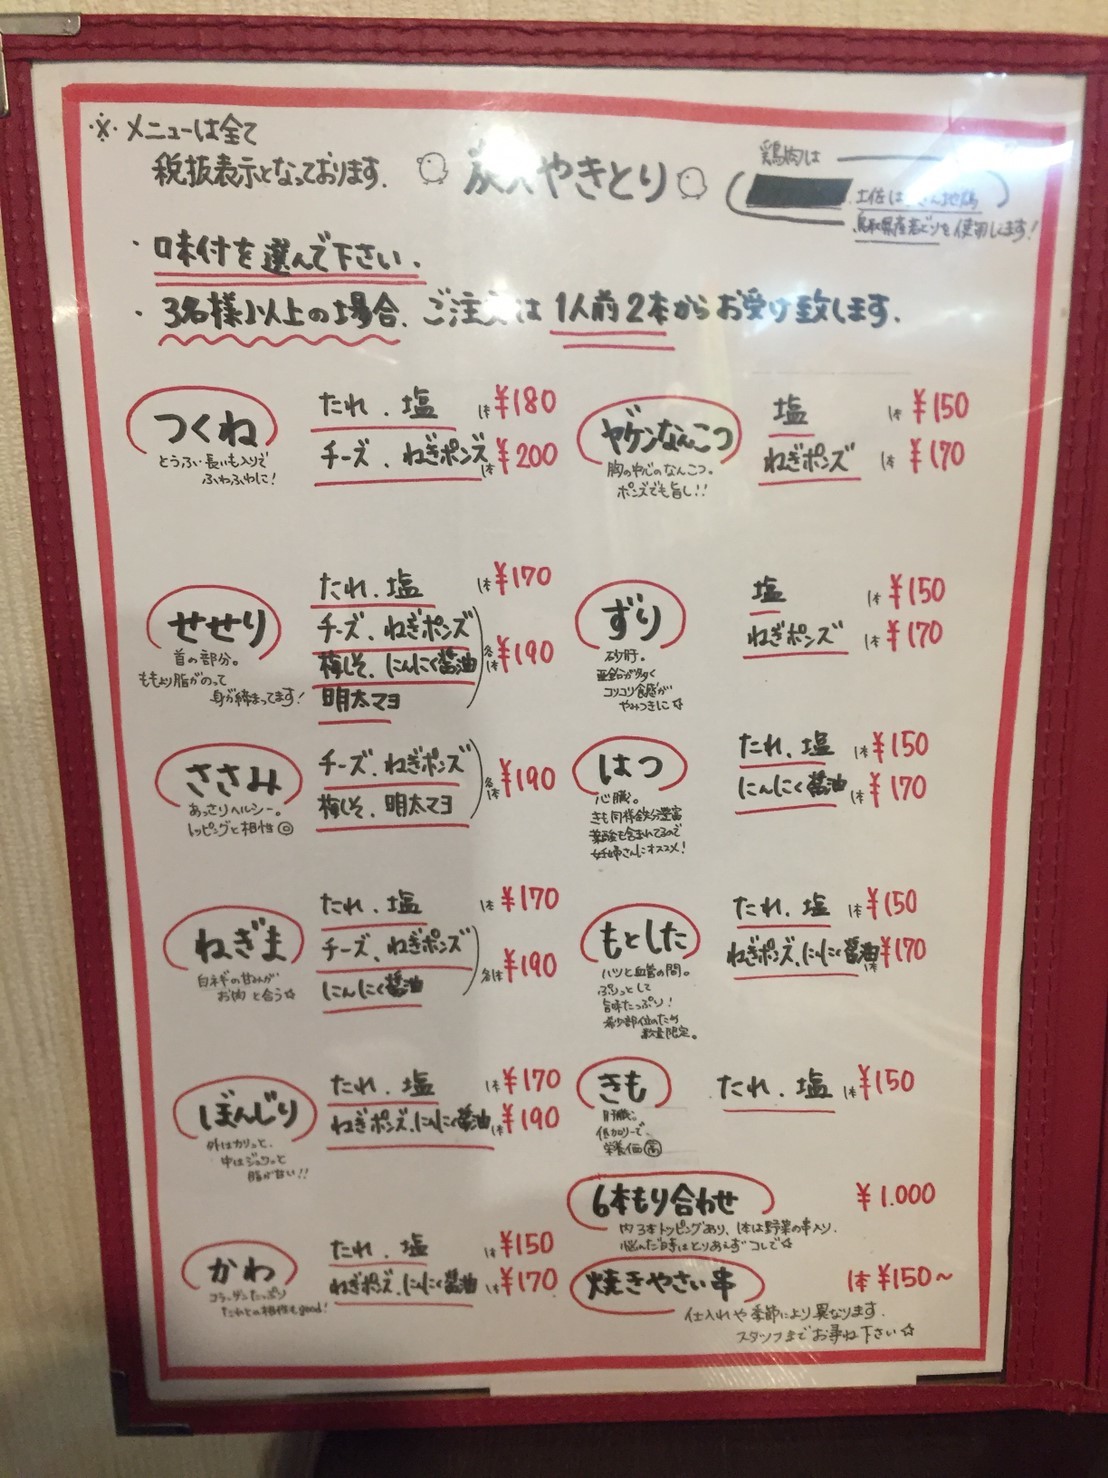 ※メニューは全て
税抜表示となっております.
炭火やきとり
鶏肉は
土佐は 地鶏
鳥取県産 を使用します!
・味付を選んで下さい.
・3名様以上の場合.ご注文は1人前2本からお受け致します.
つくね
とうふ・長いも入りで
ふわふわに!
たれ.塩 1本¥180
チーズ.ねぎポンズ 1本¥200
せせり
首の部分。
ももより脂がのって
身が締まってます!
たれ.塩 1本¥170
チーズ.ねぎポンズ
梅しそ.にんにく醤油
明太マヨ
各1本¥190
ささみ
あっさりヘルシー。
トッピングと相性◎
チーズ.ねぎポンズ
梅しそ.明太マヨ
各1本¥190
ねぎま
白ネギの甘みが
お肉と合う☆
たれ.塩 1本¥170
チーズ.ねぎポンズ
にんにく醤油
各1本¥190
ぼんじり
外はカリッと、
中はジュワッと
脂が甘い!!
たれ.塩 1本¥170
ねぎポンズ.にんにく醤油 1本¥190
かわ
コラーゲンたっぷり
たれとの相性もgood!
たれ.塩 1本¥150
ねぎポンズ.にんにく醤油 1本¥170
ヤゲンなんこつ
胸の のなんこつ。
ポンズでも旨し!!
塩 1本¥150
ねぎポンズ 1本¥170
ずり
砂肝。
亜鉛が多く
コリコリ食感が
やみつきに☆
塩 1本¥150
ねぎポンズ 1本¥170
はつ
心臓。
きも同様鉄分豊富
葉酸も含まれてるので
妊婦さんにオススメ!
たれ.塩 1本¥150
にんにく醤油 1本¥170
もとした
ハツと血管の間。
ぷりっとして
旨味たっぷり!
希少部位のため
数量限定。
たれ.塩 1本¥150
ねぎポンズ.にんにく醤油 1本¥170
きも
肝臓。
低カロリーで
栄養価高
たれ.塩 1本¥150
6本もり合わせ ¥1.000
内3本トッピングあり、1本は野菜の串入り.
悩んだ時はとりあえずコレで☆
焼きやさい串 1本¥150〜
仕入れや季節により異なります.
スタッフまでお尋ね下さい☆